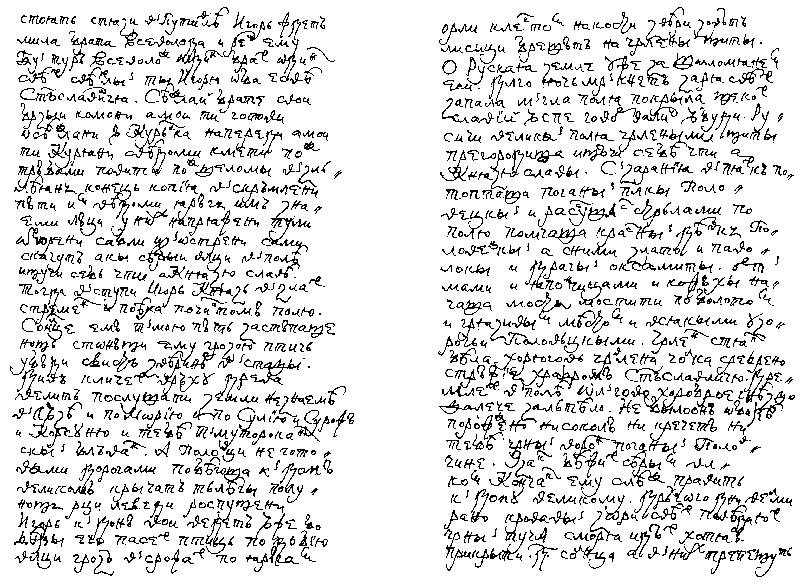 стоять стязи в Путивлѣ Игорь ждетъ
мила брата Всеволода и рече ему
Буй туръ Всеволодъ одинъ братъ один
свѣт свѣтлы ты Игорю оба есвѣ
Святъславличя. Сѣдлай брате свои
бръзыи комони а мои ти готови
осѣдлани у Курьска напереди а мои
ти Куряни свѣдоми кмети под
трубами повити под шеломы възлѣ„
лѣянъ конець копiя въскръмлени
пути им вѣдоми яругы имъ зна„
еми луци у них напряжени тули
отворени сабли изъострени сами
скачутъ акы сѣрыи влци в полѣ
ищучи себѣ чти а Князю славѣ.
Тогда въступи Игорь Князь в злат
стремен и поѣха по чистомѣ полю.
Солнце емѣ тмою путь заступаше
нощь стонущи ему грозою птичь
убуди свистъ звѣринъ въ стазы.
Дивъ кличет връху древа
велитъ послушати земли незнаемѣ
Влъзѣ и поморiю и по Сулiю и Сурожѣ
и Корсуню и тебѣ Тмуторокан„
скы блъван. А Половци негото„
вами дорогами побѣгоша к Дону
великомѣ крычатъ тѣлѣгы полу„
нощы рци лебеди роспущени
Игорь к Дону вои ведетъ уже бо
бѣды его пасет птиць по дубiю
влци грозѣ въсрожат по яругам
орли клектом на кости звѣри зовутъ
лисици брешутъ на чрлены щиты.
О Руская земле уже за Шеломянем
еси. Длъго ночь мркнетъ заря свѣт
запала мгла поля покрыла щекот
славiй успе говор галич убуди. Ру„
сичи великы поля чрлеными щиты
прегородиша ищучи себѣ чти а
Князю славы. С зарания в пятк по„
топташа поганы плкы Поло„
вецкы и рассушась стрѣлами по
полю помчаша красны дѣвкы По„
ловецкы а с ними злато и паво„
локы и драгы оксамиты. орт„
мами и япончицами и кожухы на„
чаша мосты мостити по болотом
и грязивым мѣстом и всякыми узо„
рочьи Половѣцкыми. Чрлен стяг
бѣла хорюговь чрлена чолка сребрено
стружие храброму Стъславличю. Дре„
млет в полѣ Ольгово хороброе гнѣздо
далече залетѣло. Не было нъ обидѣ
порождено ни соколѣ ни кречетѣ ни
тебѣ чрны ворон поганы Полов„
чине. Гзак бѣжит сѣрым вл„
ком Кончак ему слѣд править
к Дону великому. Другаго дни велми
рано кровавы зори свѣт повѣдают
чрныя тучя с моря идут хотят
прикрыти д солнца а в них трепещуть